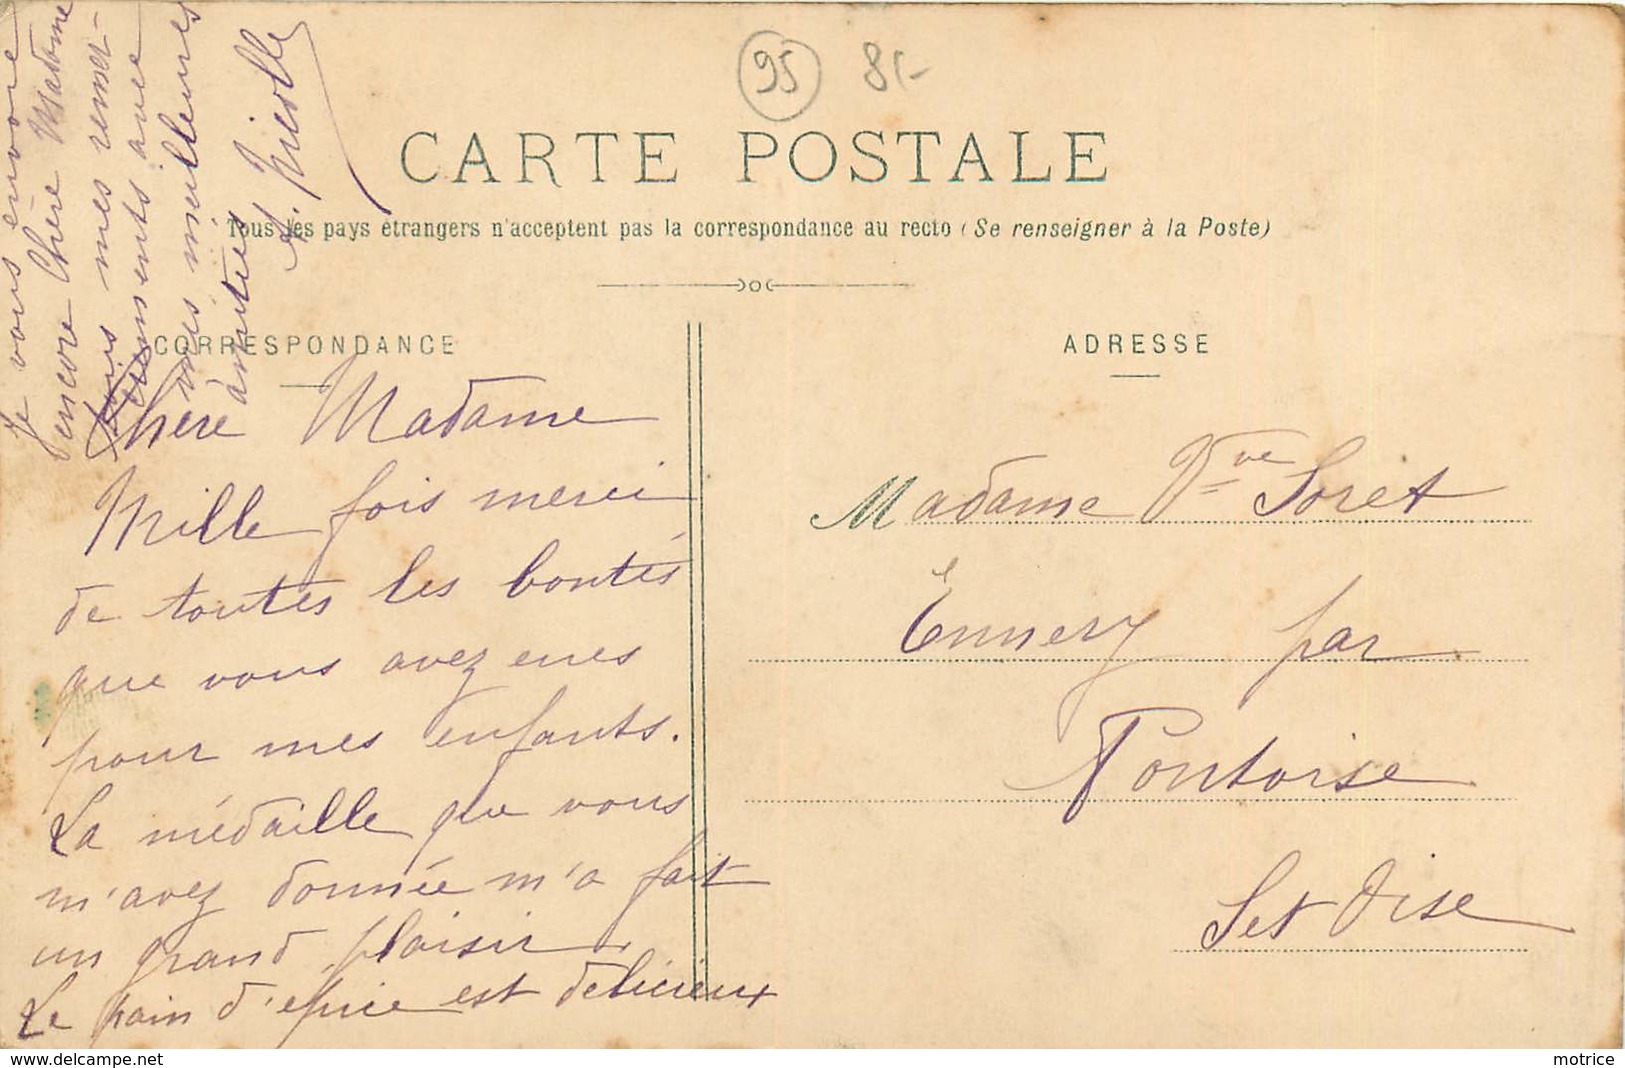 95 8/-
CARTE POSTALE
Tous les pays étrangers n'acceptent pas la correspondance au recto (Se renseigner à la Poste)
CORRESPONDANCE
ADRESSE
Chère Madame
Mille fois merci
de toutes les bontés
que vous avez eues
pour mes enfants.
La médaille que vous
m'avez donnée m'a fait
un grand plaisir
Le pain d'épice est délicieux
Je vous envoie
encore Chère Madame
mes remer-
ciements avec
mes meilleures
amitiés
Nicolle
Madame Vve Soret
Ennery par
Pontoise
S et Oise
delcampe.net
motrice